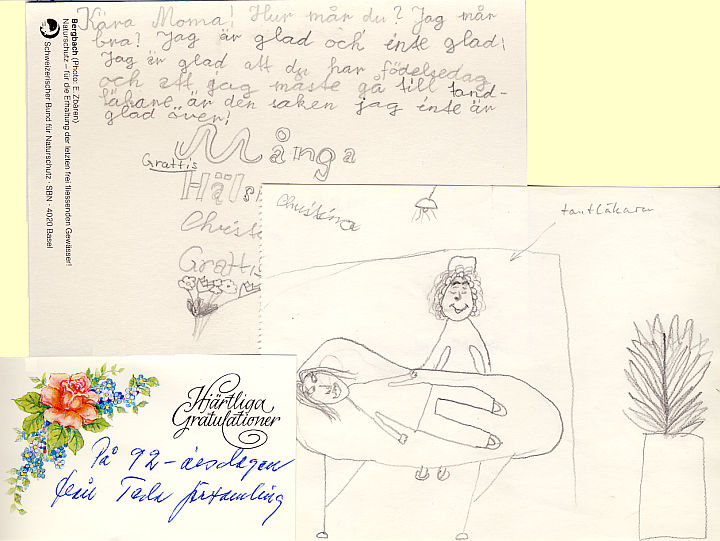 Kära Moma! Hur mår du? Jag mår
bra! Jag är glad och inte glad!
Jag är glad att du har födelsedag
och att jag måste gå till tand-
läkare är den saken jag inte är
glad över!
Grattis
Många
Häls
Christ
Grattis
Bergbach (Photo: E. Zbären)
Naturschutz – für die Erhaltung der letzten frei fliessenden Gewässer!
Schweizerischer Bund für Naturschutz · SBN · 4020 Basel
Christina
tantläkaren
Hjärtliga
Gratulationer
På 92-årsdagen
från Tada församling